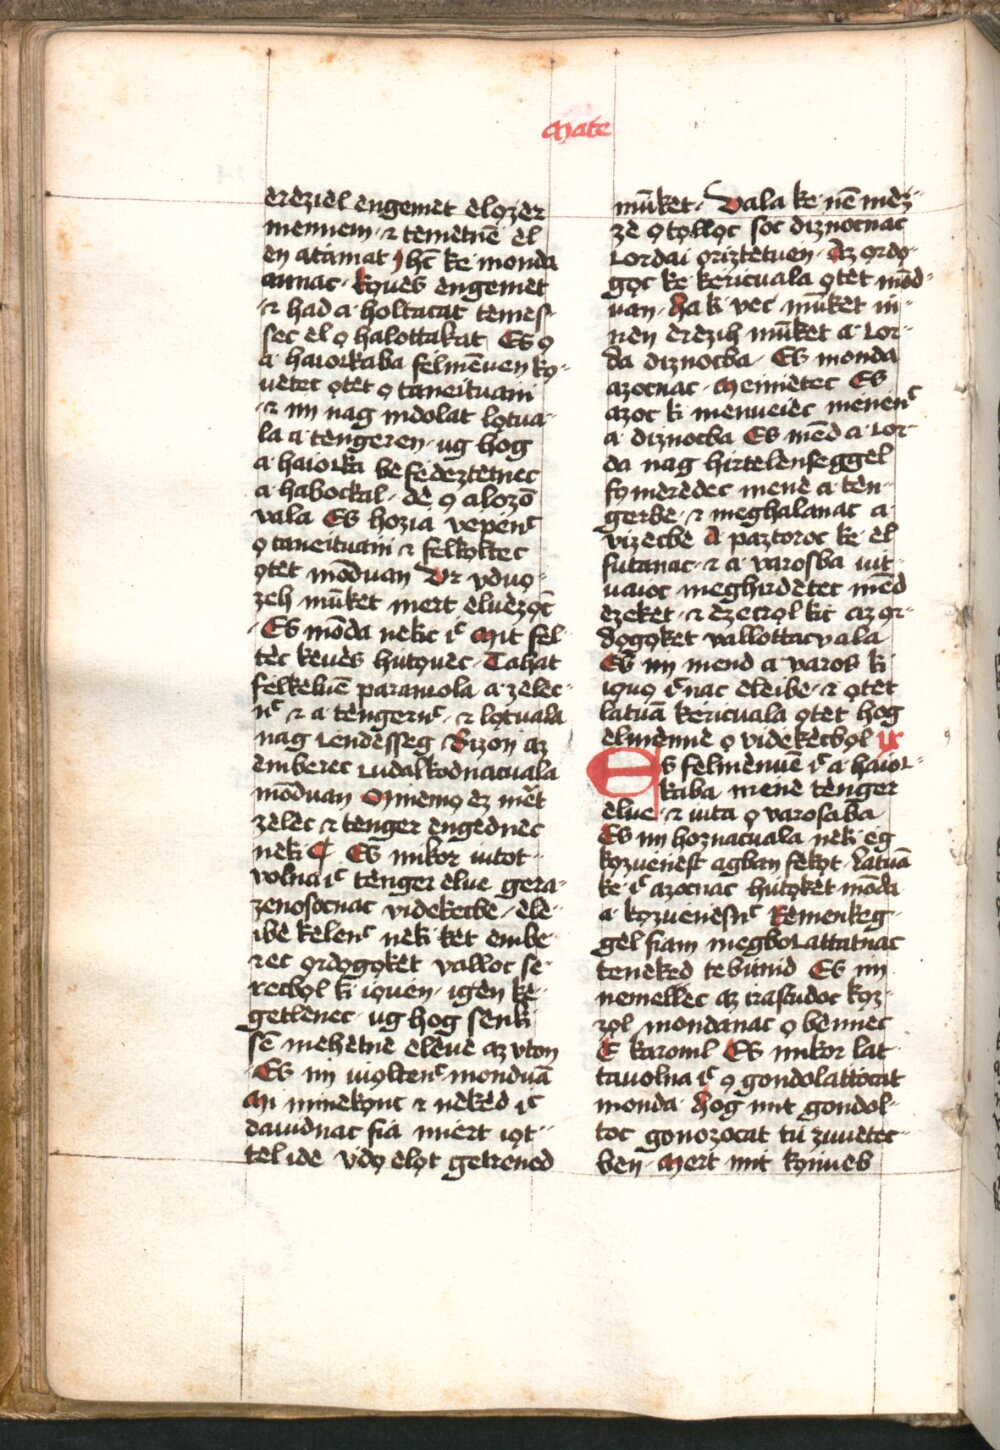 Mate
ereziel engemet elozer
mennem · ⁊ temetnē èl
èn atamat Ihc̄ ke monda
annac · Kouės engemet
⁊ had a holtacat temes-
sec èl ọ halottakat Es ọ
a haiorkaba felmēuen kọ-
uètec ọtèt ọ taneituani
⁊ im nag indolat lọtua-
la a tengeren · ug hog
a haiorka be fedeztetnec
a habockal · dè ọ alozō
vala Es hozia vèpènc̄
ọ taneituani ⁊ felkoltec
ọtèt mōduan Ur vduọ-
zeh mu̇ket mert eluèzọc̄
Es mōda nekic ic̄ Mit fèl-
tèc keuès hutọuec · Tahat
felkeluē paranıola a zelèc-
nc̄ ⁊ a tèngernc̄ · ⁊ lọtuala
nag lendèsseg Bizon az
emberec ludalkodnacuala
mōduan Minemọ èz mèt
zèlec ⁊ tènger èngednec
neki Es mikor iutot-
volna ic̄ tènger èlue gera-
zenosocnac videkecbe · èlè-
ibè kèlenc̄ neki kèt embe-
rec ọrdọgọkèt valloc se-
recbọl ki iọuen · igèn kè-
getlenec · ug hog senki
sē mèhètnè elèue az vton
Es im iuoltenc̄ monduā
Mi minekọnc ⁊ nekèd ic̄
dauidnac fia mièrt iọt-
tel ide vdọ elọt getrened
mu̇ket · Vala ke nē mèz-
zè ọtọllọc soc diznocnac
cordai ọriztètuen · Az ọrdọ-
gọc ke kèricuala ọtèt mōd-
uan · Ha ki vèc mu̇ket in-
nèn erèzih mu̇ket a cor-
da diznocba · Es monda
azocnac · Meniètec Es
azoc ki menueiec mènenc̄
a diznocba Es mēd a cor-
da nag hirtelenseggèl
fọmèredec mènè a tèn-
gerbe · ⁊ meghalanac a
vizècbè A paztoroc ke èl
futanac · ⁊ a varosba iut-
uaioc meghirdètèc mēd
ezeket · ⁊ èzècrọl kic az ọr-
dọgọket vallottacvala
Es im mend a varos ki
iọuọ ic̄nac eleibe · ⁊ ọtèt
latuā kèricuala ọtèt hog
elmènne ọ videkècbọl IX
Es felmènuē ic̄ a haior-
kaba mènè tènger
elue · ⁊ iuta ọ varosaba
Es im hoznacuala neki èg
kọzuenest agban fekọt · Latuā
ke ic̄ azocnac hutọkèt mōda
a kọzuenèsnc̄ Remenkèg-
gèl fiam mègbocattatnac
tenèked te bu̇nid Es im
nemellec az irastudoc kọz-
zọl mondanac ọ bennec
E karoml Es mikor lat-
tauolna ic̄ ọ gondolattocat
monda · Hog mit gondol-
toc gonozocat tu̇ zu̇uètec-
ben · Mert mit kọnnuèb